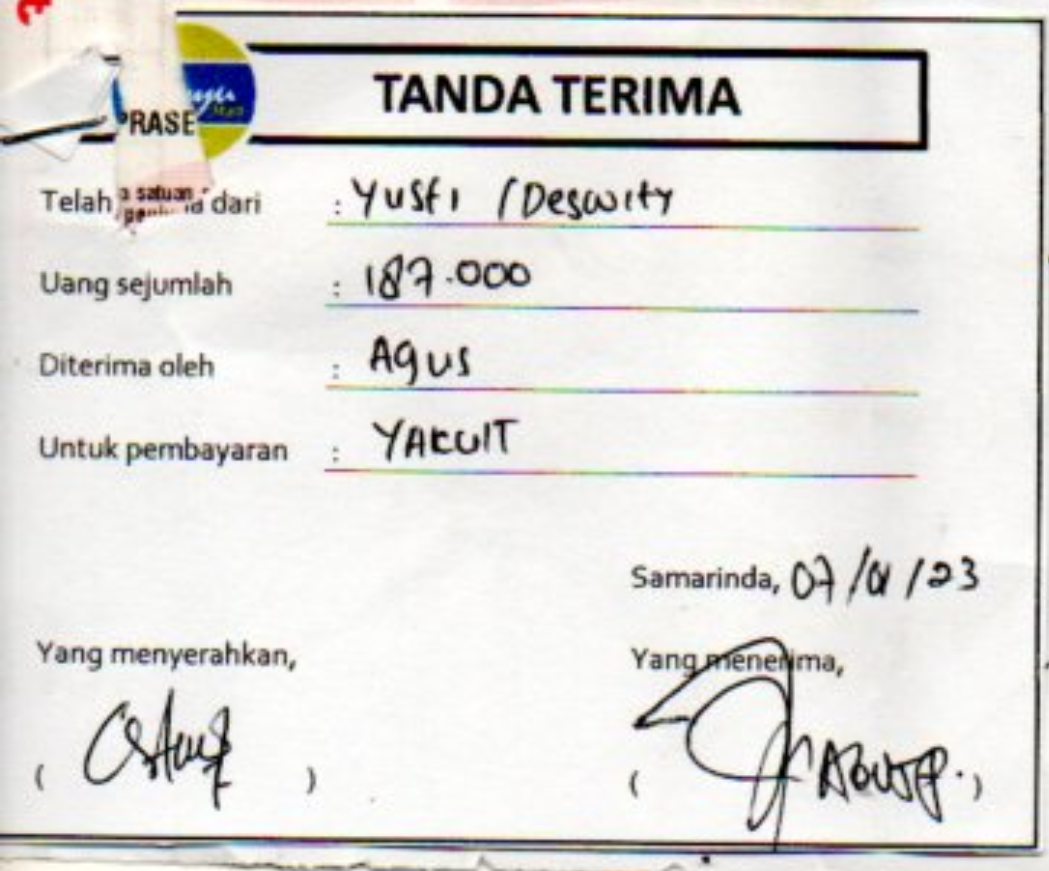 TANDA TERIMA
PRASE
Telah dari : Yusfi / Deswity
satuan
Uang sejumlah : 187.000
Diterima oleh : Agus
Untuk pembayaran : YAKULT
Samarinda, 07/01/23
Yang menyerahkan,
Yang menerima,
( )
( AGUS P. )